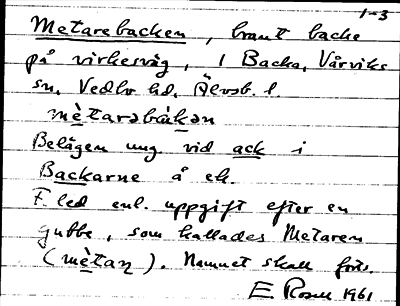 1-3
Metarebacken, brant backe
på virkesväg, i Backa, Vårviks
sn, Vedbo hd, Älvsb. l.
mètarəbàkən
Belägen ung vid ack i
Backarne å ek.
F. led enl. uppgift efter en
gubbe, som kallades Metaren
(mètaṇ). Namnet skall förs.
E. Rosell 1961